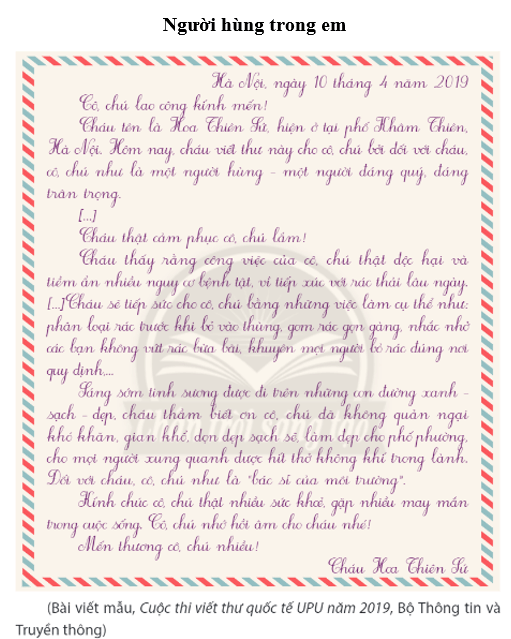 Người hùng trong em
Hà Nội, ngày 10 tháng 4 năm 2019
Cô, chú lao công kính mến!
Cháu tên là Hoa Thiên Sứ, hiện ở tại phố Khâm Thiên,
Hà Nội. Hôm nay, cháu viết thư này cho cô, chú bởi đối với cháu,
cô, chú như là một người hùng - một người đáng quý, đáng
trân trọng.
[...]
Cháu thật cảm phục cô, chú lắm!
Cháu thấy rằng công việc của cô, chú thật độc hại và
tiềm ẩn nhiều nguy cơ bệnh tật, vì tiếp xúc với rác thải lâu ngày.
[...]Cháu sẽ tiếp sức cho cô, chú bằng những việc làm cụ thể như:
phân loại rác trước khi bỏ vào thùng, gom rác gọn gàng, nhắc nhở
các bạn không vứt rác bừa bãi, khuyên mọi người bỏ rác đúng nơi
quy định,...
Sáng sớm tinh sương được đi trên những con đường xanh -
sạch - đẹp, cháu thầm biết ơn cô, chú đã không quản ngại
khó khăn, gian khổ, dọn dẹp sạch sẽ, làm đẹp cho phố phường,
cho mọi người xung quanh được hít thở không khí trong lành.
Đối với cháu, cô, chú như là "bác sĩ của môi trường".
Kính chúc cô, chú thật nhiều sức khoẻ, gặp nhiều may mắn
trong cuộc sống. Cô, chú nhớ hồi âm cho cháu nhé!
Mến thương cô, chú nhiều!
Cháu Hoa Thiên Sứ
(Bài viết mẫu, Cuộc thi viết thư quốc tế UPU năm 2019, Bộ Thông tin và
Truyền thông)